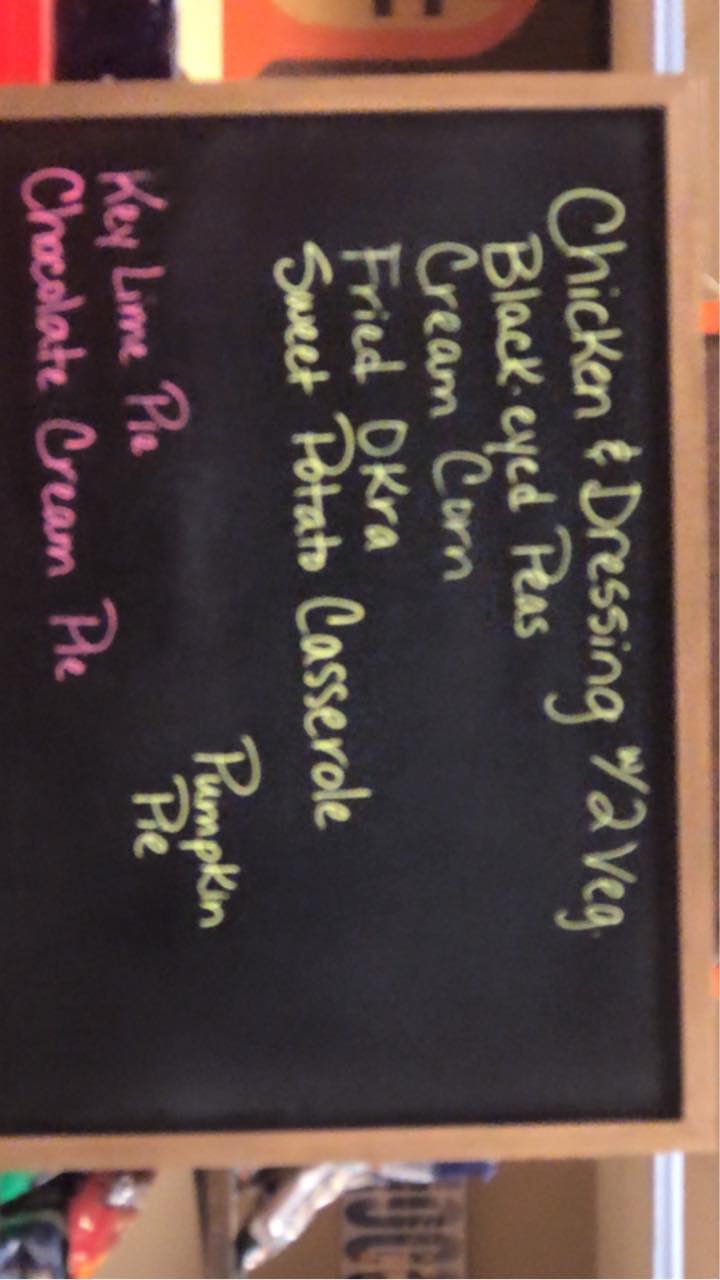 Chicken & Dressing w/ 2 Veg.
Black-eyed Peas
Cream Corn
Fried OKra
Sweet Potato Casserole
Pumpkin
Pie
Key Lime Pie
Chocolate Cream Pie